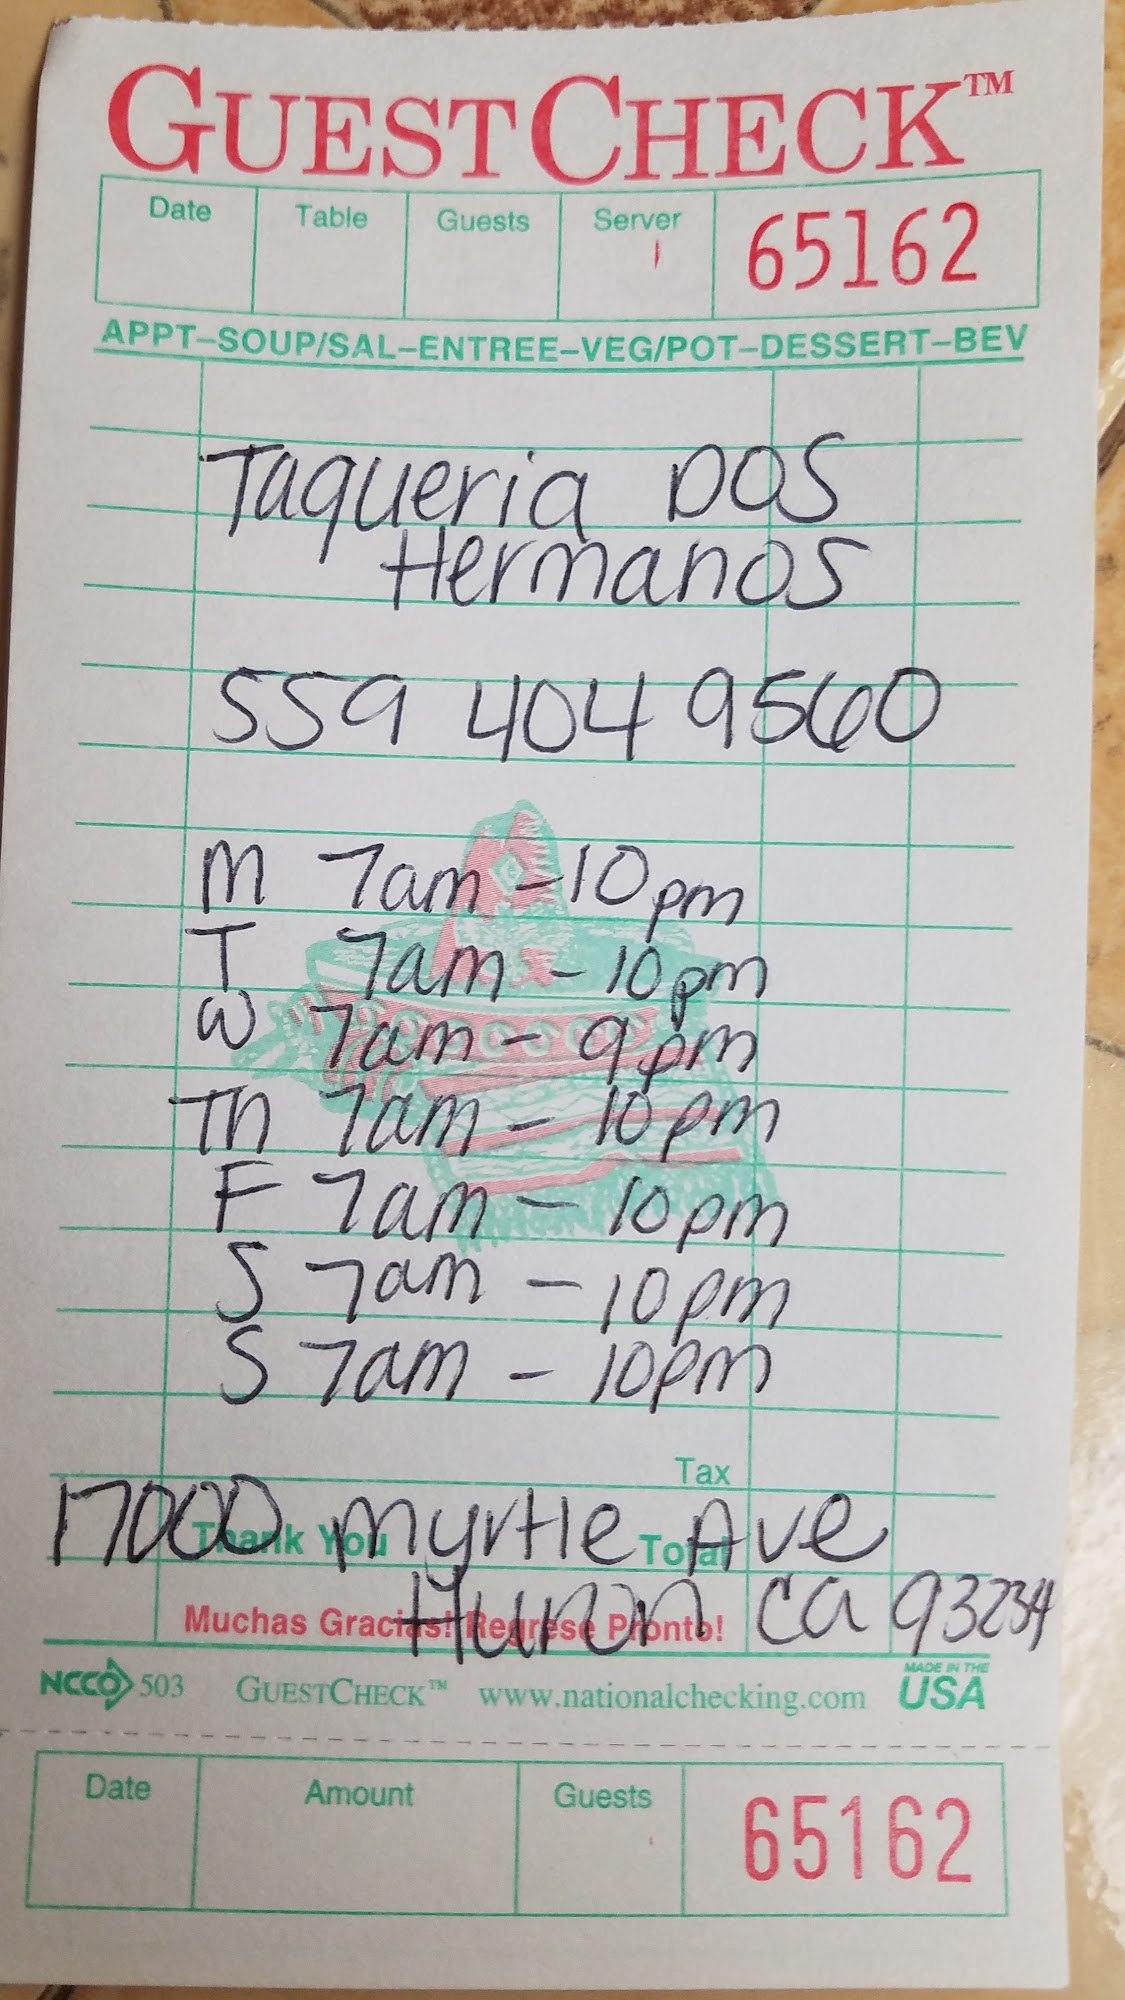 GUESTCHECK™
Date Table Guests Server 65162
APPT–SOUP/SAL–ENTREE–VEG/POT–DESSERT–BEV
Taqueria DOS
Hermanos
559 404 9560
M 7am - 10pm
T 7am - 10pm
W 7am - 9pm
Th 7am - 10pm
F 7am - 10pm
S 7am - 10pm
S 7am - 10pm
Tax
17000 Myrtle Ave
Thank You Total
Huron CA 93234
Muchas Gracias! Regrese Pronto!
NCCO 503 GUESTCHECK™ www.nationalchecking.com MADE IN THE USA
Date Amount Guests 65162